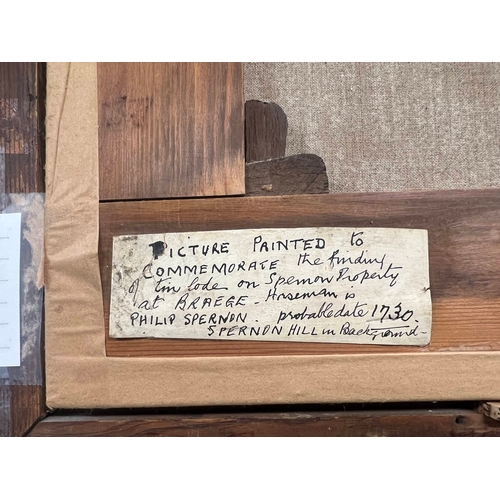 PICTURE PAINTED to
COMMEMORATE the finding
of tin lodes on Spernon Property
at BRAEGE - Horseman is
PHILIP SPERNON. probable date 1730.
SPERNON HILL in Background-